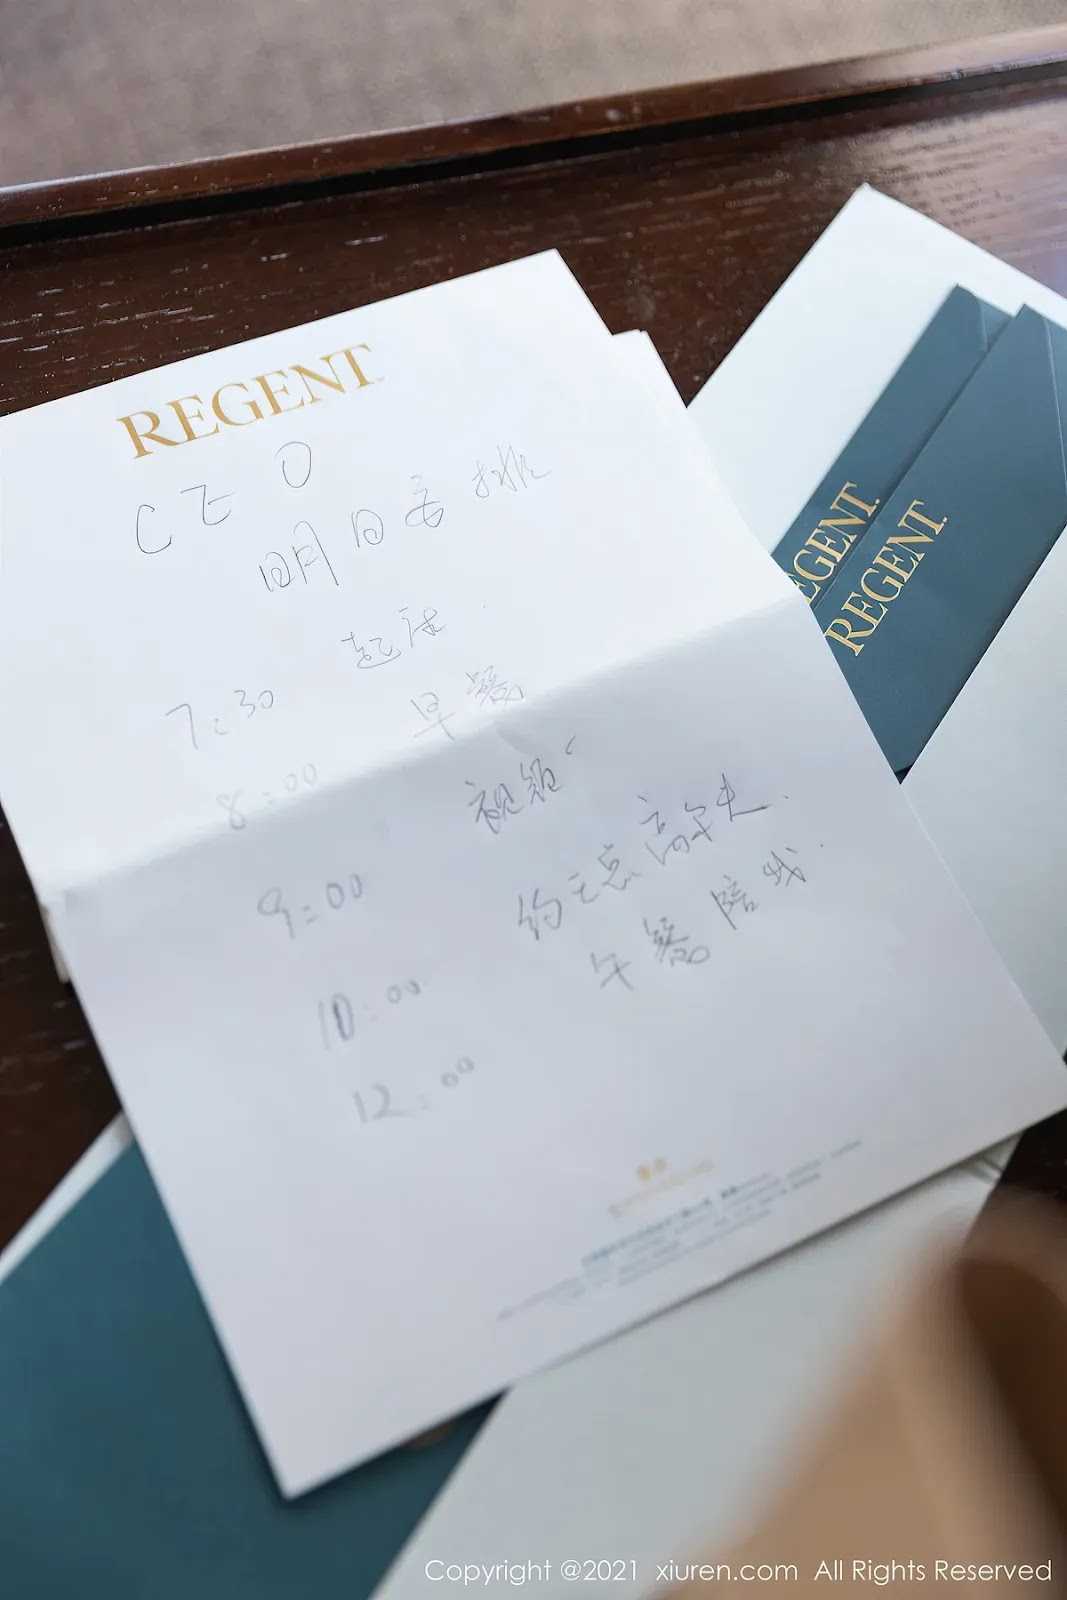 REGENT
CEO
明日安排
7:30 起床
8:00 早餐
9:00 视频
10:00 约王总高尔夫
12:00 午餐陪我
EGENT
REGENT
Copyright @2021 xiuren.com All Rights Reserved